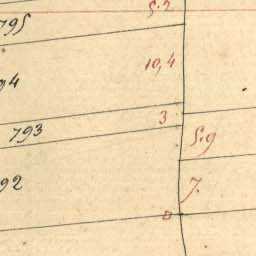 795
5.2
10,4
3
793
5.9
92
7.